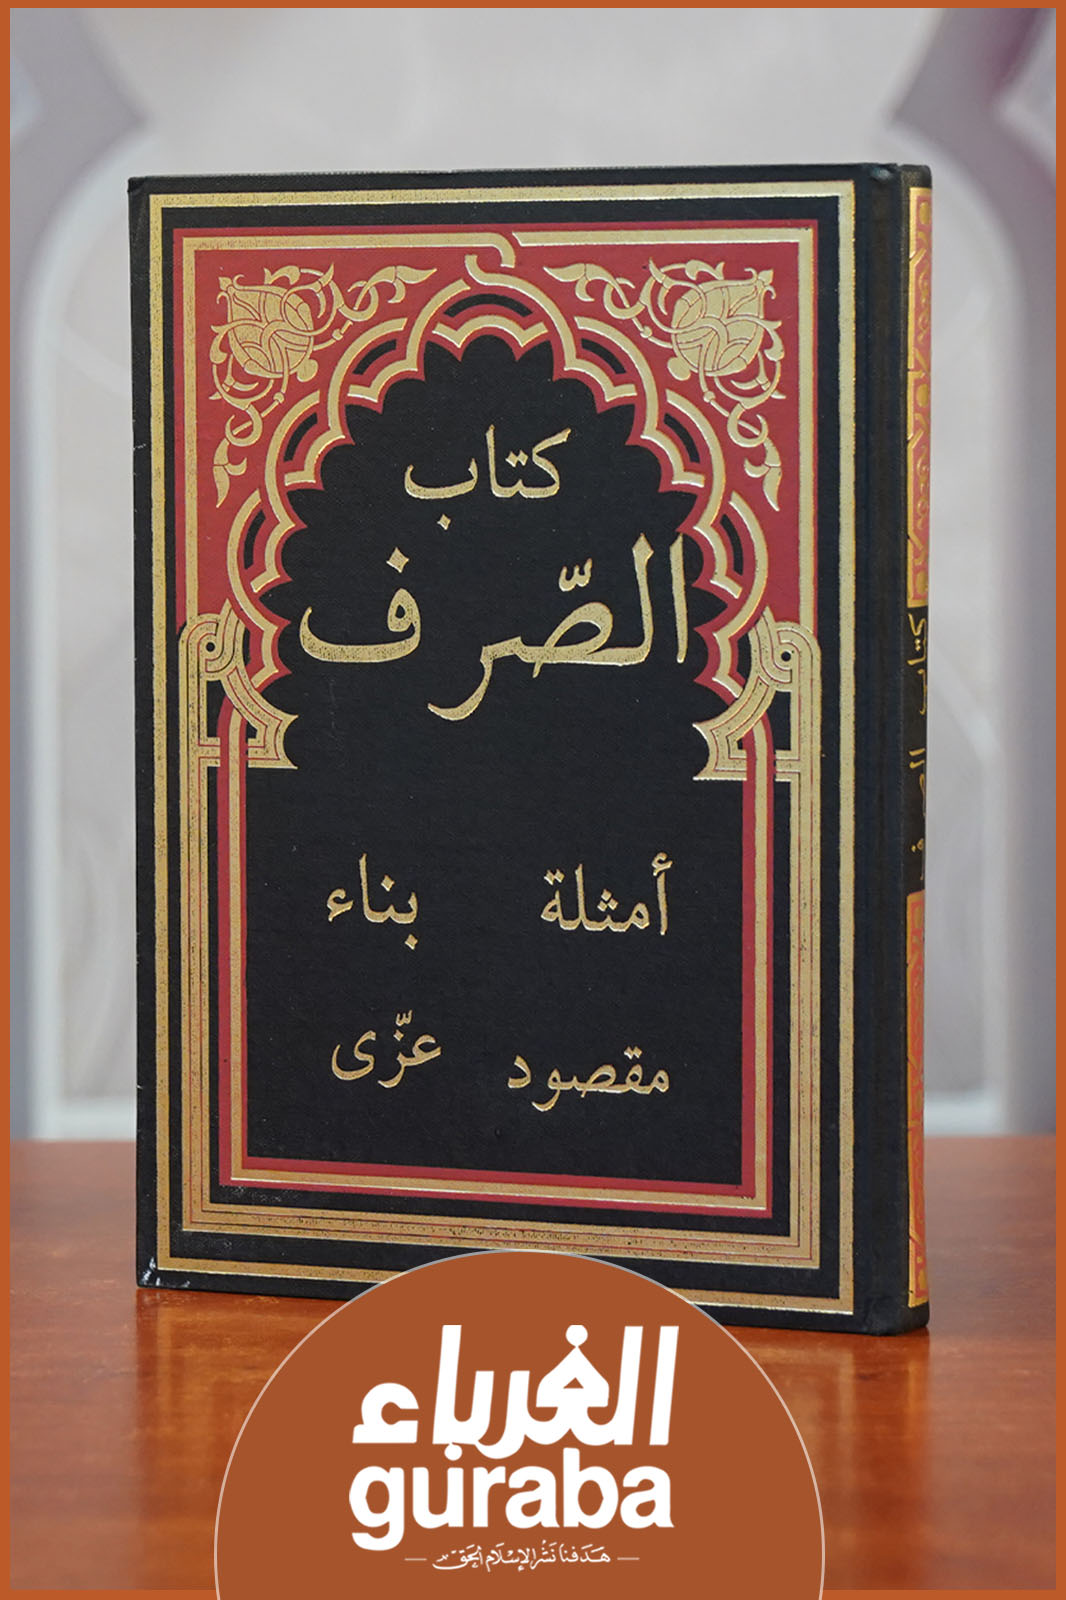 كتاب
الصّرف
أمثلة بناء
مقصود عزّى
كتاب الصرف
الغرباء
guraba
هَدَفنا نَشْرُ الإسْلَام الحَقّ